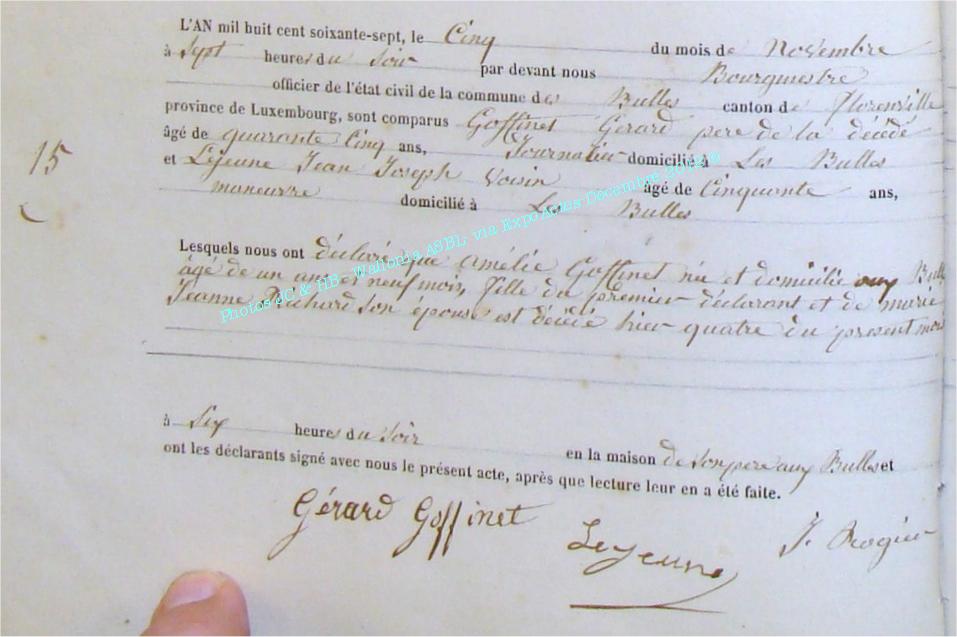 L'AN mil huit cent soixante-sept, le Cinq du mois de Novembre
à Sept heures du Soir par devant nous Bourgmestre
officier de l'état civil de la commune des Bulles canton de Florenville
province de Luxembourg, sont comparus Goffinet Gerard pere de la décédé
âgé de quarante Cinq ans, Journalier domicilié à Les Bulles
15
et Lejeune Jean Joseph Voisin âgé de Cinquante ans,
manœuvre domicilié à Les Bulles
Lesquels nous ont déclaré que Amélie Goffinet née et domicilié aux Bulles
âgé de un ans et neuf mois, fille du premier déclarant et de marie
Jeanne Richard son épouse est décédé hier quatre du present mois
Photos JC & HB - Wallonia ASBL, via Expo Actes Decembre
à Six heures du Soir en la maison de son pere aux Bulles et
ont les déclarants signé avec nous le présent acte, après que lecture leur en a été faite.
Gérard Goffinet
Lejeune
J. Rogier